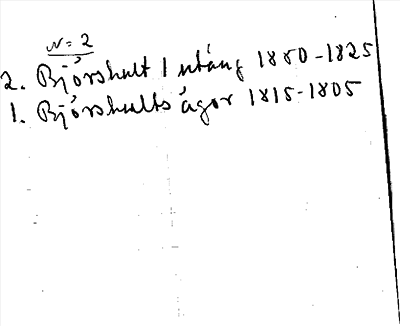 N = 2
2. Björshult 1 utäng 1850-1825
1. Björshults ägor 1815-1805